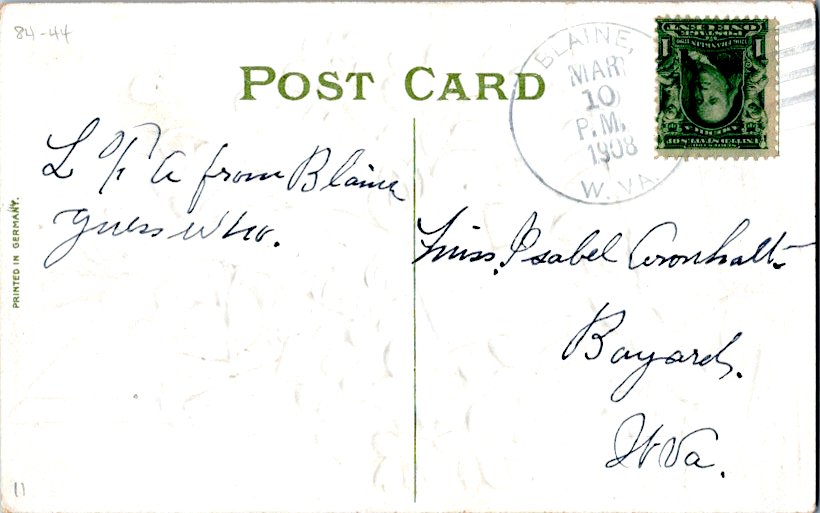 84-44
POST CARD
BLAINE,
MAR
10
P.M.
1908
W. VA.
1
ONE CENT
1
L F A from Blaine
guess who.
PRINTED IN GERMANY.
Miss. Isabel Aronhalt
Bayard.
W Va.
11